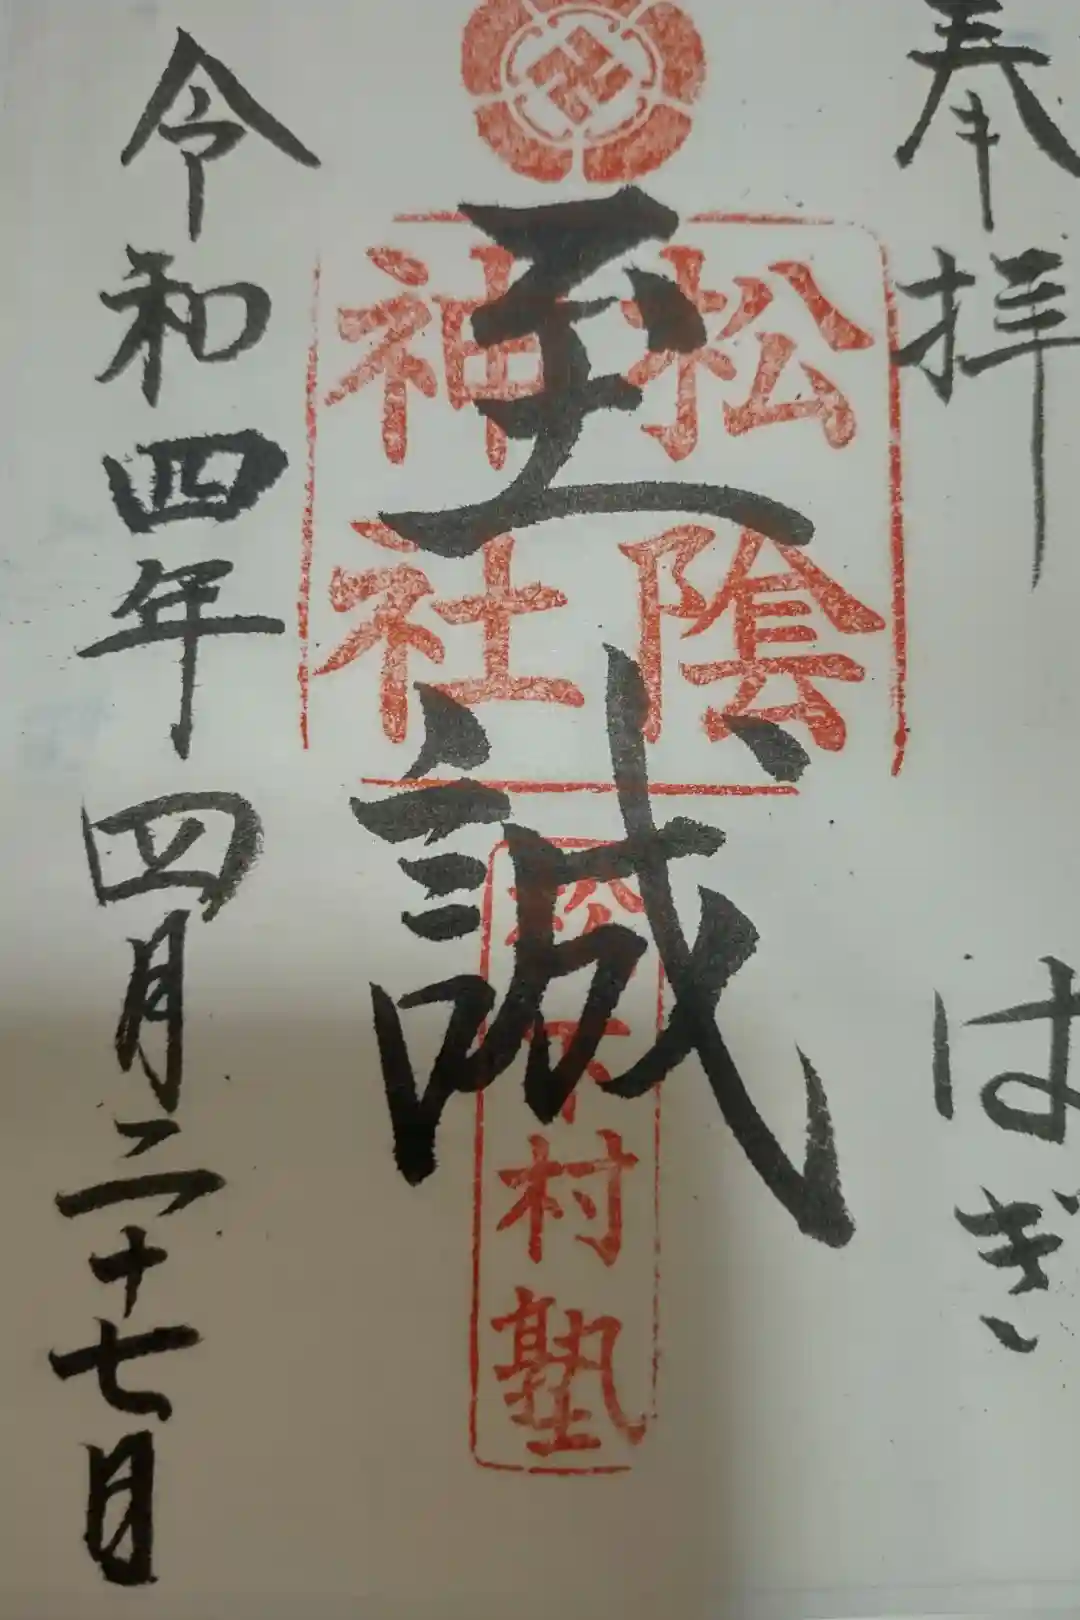 奉拝 はぎ
至誠
松陰神社
松下村塾
令和四年四月二十七日